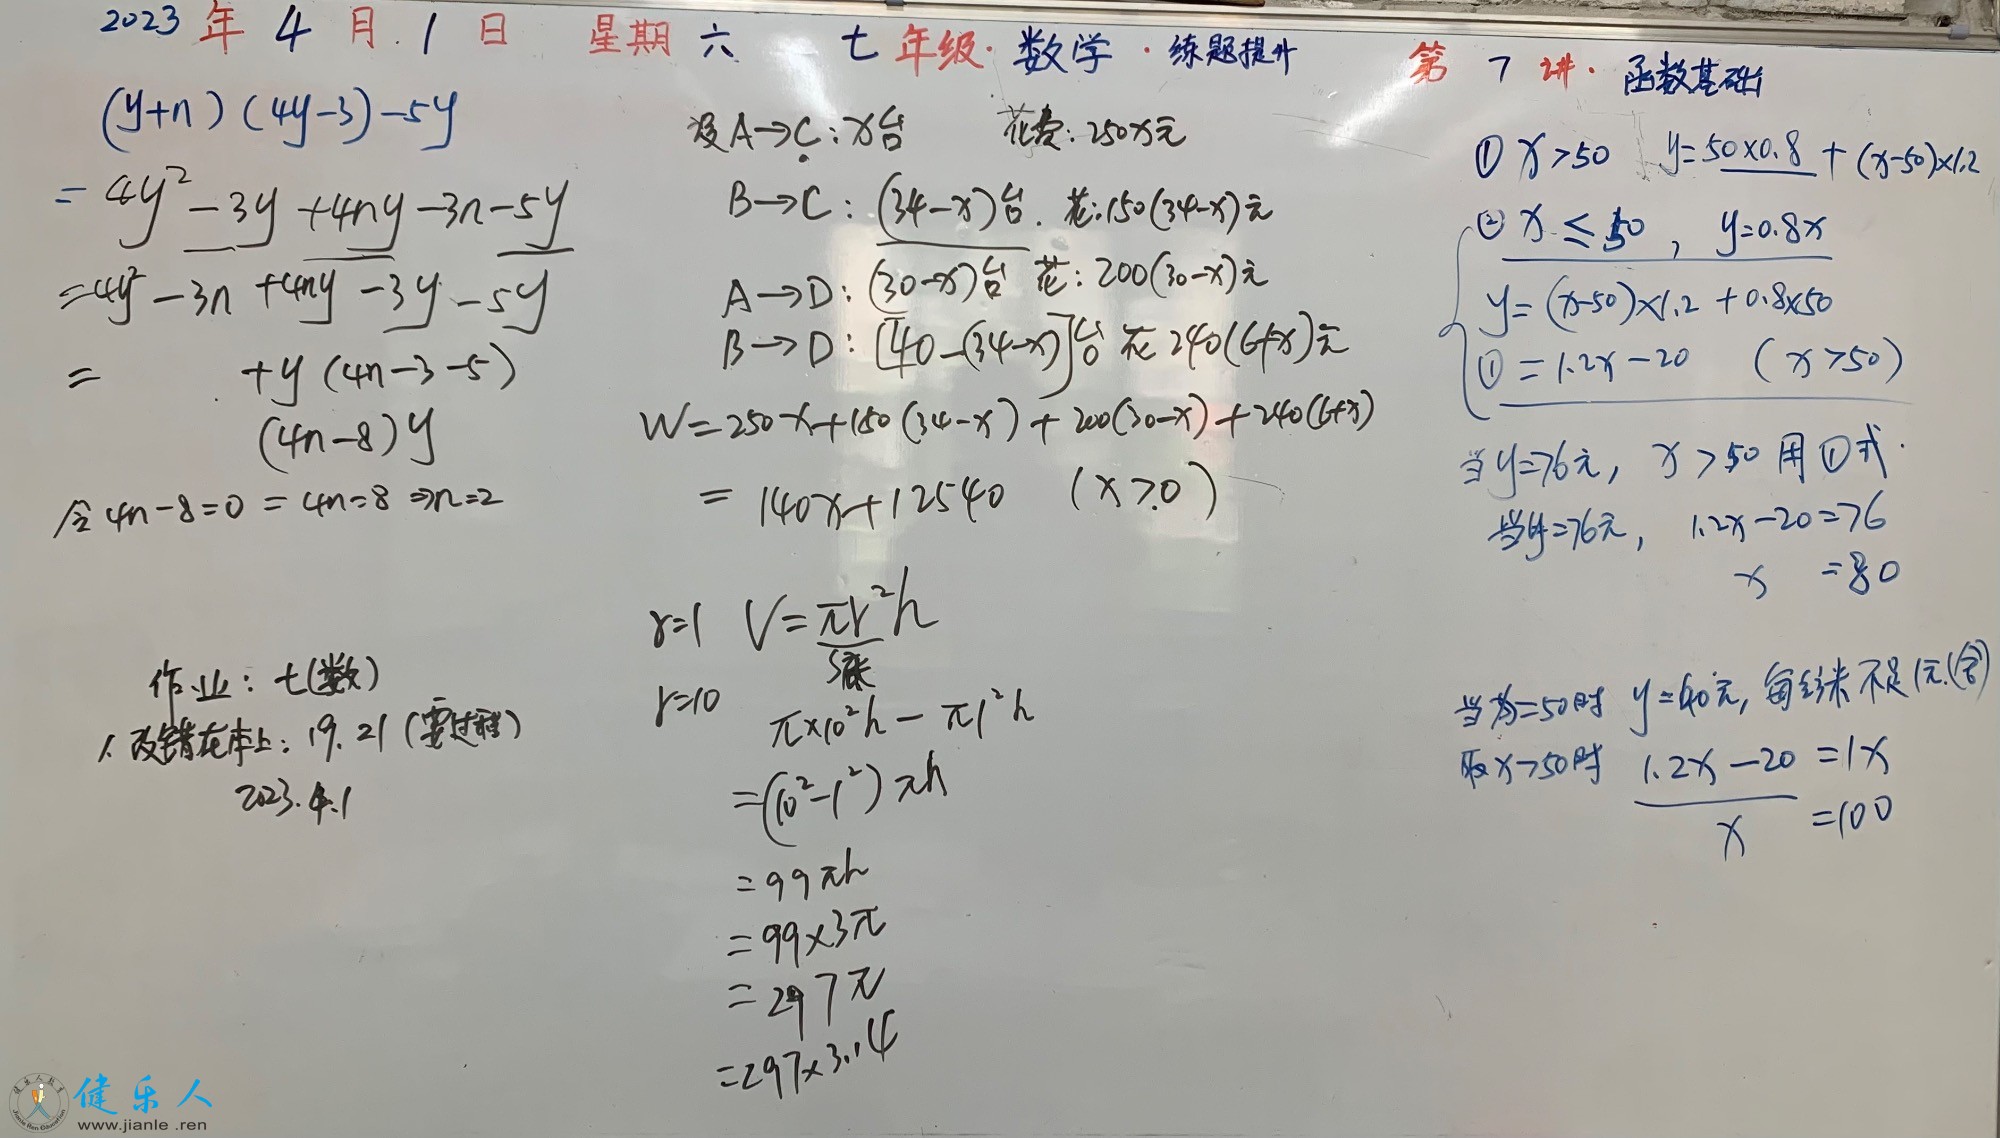 2023年4月1日 星期六 七年级·数学·练题提升 第7讲·函数基础
(y+n)(4y-3)-5y
=4y²-3y+4ny-3n-5y
=4y²-3n+4ny-3y-5y
= +y(4n-3-5)
(4n-8)y
令4n-8=0=4n=8⇒n=2
作业:七(数)
1.改错在本上:19.21(要过程)
2023.4.1
设A→C:x台 花费:250x元
B→C:(34-x)台.花:150(34-x)元
A→D:(30-x)台 花:200(30-x)元
B→D:[40-(34-x)]台 花240(6+x)元
W=250x+150(34-x)+200(30-x)+240(6+x)
=140x+12540 (x≥0)
r=1 V=πr²h
S底
r=10 π×10²h-π1²h
=(10²-1²)πh
=99πh
=99×3π
=297π
=297×3.14
①x>50 y=50×0.8+(x-50)×1.2
②x≤50,y=0.8x
y=(x-50)×1.2+0.8×50
①=1.2x-20 (x>50)
当y=76元,x>50用①式.
当y=76元,1.2x-20=76
x=80
当x=50时 y=40元,每立方米不足1元.(舍)
取x>50时 1.2x-20=1x
x =100
健乐人
www.jianle.ren